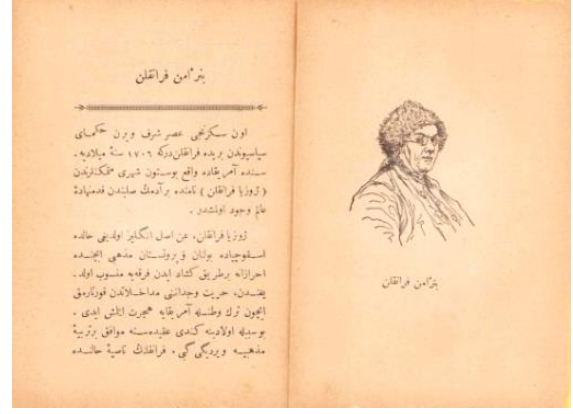 بنژامن فرانقلن
اون سكزنجی عصر شرف ویرن حكمای
سیاسیوندن بریده فرانقلن دركه ١٧٠٦ سنۀ میلادیه-
سنده آمریقاده واقع بوستون شهری متمكنلرندن
( ژوزیا فرانقلن ) نامنده برآدمك صلبندن قدمنهادۀ
عالم وجود اولمشدر .
ژوزیا فرانقلن، عن اصل انكلیز اولدیغی حالده
اسقوچیاده بولنان پروتستان مذهبی ایچنده
احرارانه برطریق كشاد ایدن فرقه‌یه منسوب اولد-
یغندن، حریت وجداننی مداخلاتدن قورتارمق
ایچون ترك وطنله آمریقایه هجرت ایتمش ایدی .
بوسبله اولادینه كندی عقیده‌سنه موافق برتربیۀ
مذهبیه ویردیكی كبی ، فرانقلنك ناصیۀ حالنده
بنژامن فرانقلن